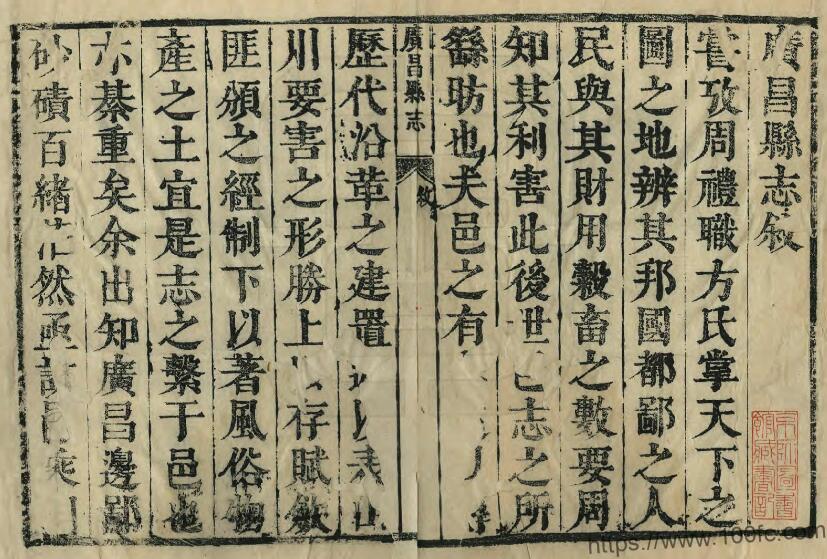 廣昌縣志叙
嘗攷周禮職方氏掌天下之
圖之地辨其邦國都鄙之人
民與其財用穀畜之數要周
知其利害此後世邑志之所
繇昉也夫邑之有
廣昌縣志 敘
歷代沿革之建置以表山
川要害之形勝上以存賦斂
匪頒之經制下以著風俗物
產之土宜是志之繫于邑也
亦綦重矣余出知廣昌邊鄙
砂磧百緒茫然亟討邑乘
https://www.100fc.com